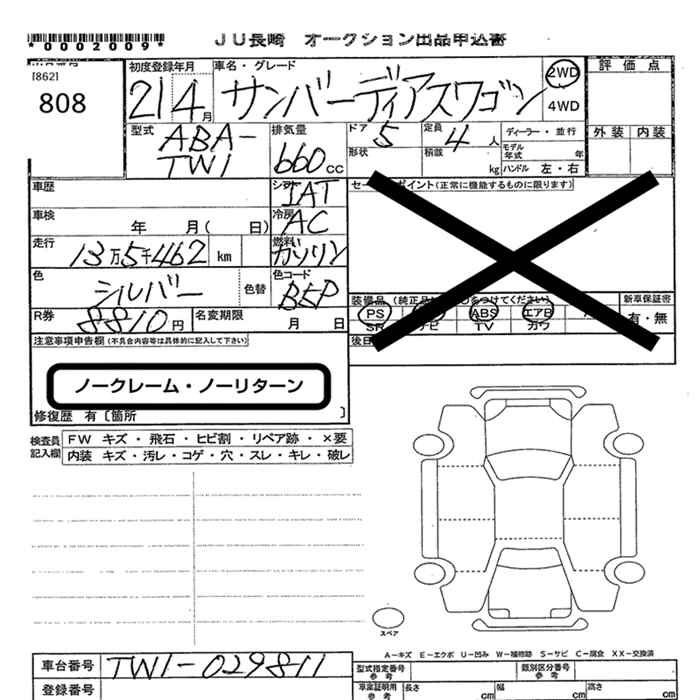 *0002009*
JU長崎 オークション出品申込書
[862]
808
初度登録年月
21 4月
車名・グレード
サンバーディアスワゴン
2WD
4WD
評価点
外装 内装
型式
ABA-
TW1
排気量
660cc
ドア 5
形状
定員 4人
積載 kg
ディーラー・並行
モデル年式 年
ハンドル 左・右
車歴
シフト IAT
セールスポイント(正常に機能するものに限ります)
車検 年 月( 日)
冷房 AC
走行 13万5千462 km
燃料 ガソリン
色 シルバー 色替
色コード
装備品 (純正品に
をつけてください)
新車保証書
有・無
PS
ABS
エアB
SR
ナビ
TV
カワ
R券 8810円
名変期限 月 日
後日
注意事項申告欄(不具合内容等は具体的に記入して下さい)
ノークレーム・ノーリターン
修復歴 有〔箇所 〕
検査員記入欄
FW キズ・飛石・ヒビ割・リペア跡・×要
内装 キズ・汚レ・コゲ・穴・スレ・キレ・破レ
スペア
A-キズ E-エクボ U-凹み W-補修跡 S-サビ C-腐食 XX-交換済
車台番号 TW1-029811
型式指定番号参考
類別区分番号参考
登録番号
車庫証明用参考
長さ cm
幅 cm
高さ cm